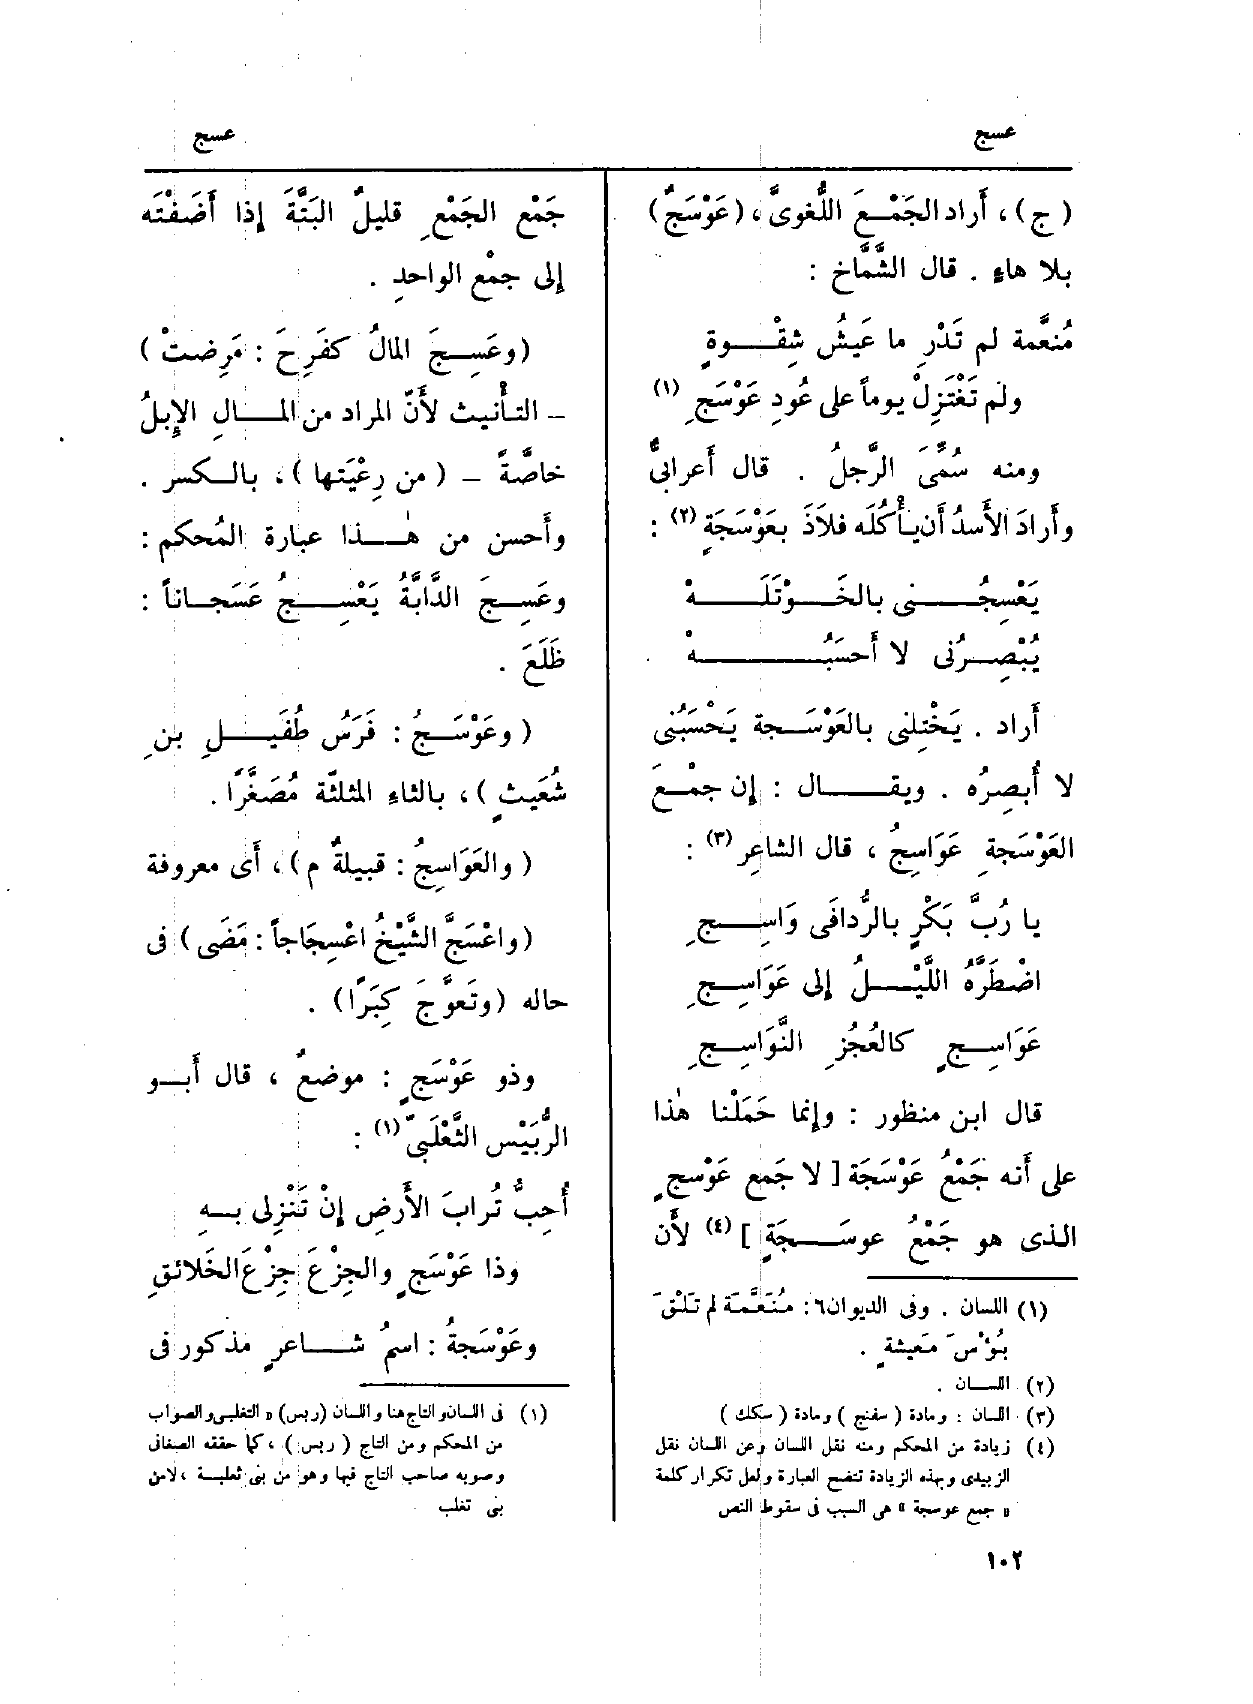 عسج
عسج
(ج)، أراد الجَمْعَ اللُّغوىَّ، (عَوْسَجٌ)
بلا هاءٍ . قال الشَّمَّاخ :
مُنعَّمة لم تَدْرِ ما عَيشُ شِقْوةٍ
ولم تَغْتَزِلْ يوماً على عُودِ عَوْسَجِ (١)
ومنه سُمِّىَ الرَّجلُ . قال أَعرابىٌّ
وأَرادَ الأَسدُ أَن يأْكُلَه فلاَذَ بعَوْسَجَةٍ (٢) :
يَعْسِجُنى بالخَوْتَلَهْ
يُبْصِرُنى لا أَحسَبُهْ
أَراد . يَخْتِلنى بالعَوْسَجة يَحْسَبُنى
لا أُبصِرُه . ويقال : إن جمْعَ
العَوْسَجةِ عَوَاسِجُ ، قال الشاعر (٣) :
يا رُبَّ بَكْرٍ بالرُّدافَى وَاسِجِ
اضْطَرَّهُ اللَّيْلُ إلى عَوَاسِجِ
عَوَاسِجٍ كالعُجُزِ النَّوَاسِجِ
قال ابن منظور : وإنما حَمَلْنا هٰذا
على أَنه جَمْعُ عَوْسَجَة [ لا جَمع عَوْسجٍ
الذى هو جَمْعُ عوسَجَةٍ ] (٤) لأَن
(١) اللسان . وفى الديوان ٦: مُنَعَّمَة لم تَلْقَ
بُؤْسَ مَعيشةٍ .
(٢) اللسان .
(٣) اللسان : ومادة ( سفنج ) ومادة ( سكك )
(٤) زيادة من المحكم ومنه نقل اللسان وعن اللسان نقل
الزبيدى وبهذه الزيادة تتضح العبارة ولعل تكرار كلمة
« جمع عوسجة » هى السبب فى سقوط النص
جَمْع الجَمْعِ قليلٌ البَتَّةَ إذا أَضَفْتَه
إلى جمْع الواحدِ .
(وعَسِجَ المالُ كفَرِحَ : مَرِضتْ )
– التأْنيث لأَنّ المراد من المالِ الإِبلُ
خاصَّةً – ( من رِعْيَتها )، بالكسر .
وأَحسن من هٰذا عبارة المُحكم :
وعَسِجَ الدَّابَّةُ يَعْسِجُ عَسَجاناً :
ظَلَعَ .
( وعَوْسَجُ : فَرَسُ طُفَيلِ بنِ
شُعَيثٍ )، بالثاءِ المثلثّة مُصَغَّرًا .
( والعَوَاسِجُ : قبيلةٌ م )، أَى معروفة
(واعْسَجَّ الشَّيْخُ اعْسِجَاجاً : مَضَى ) فى
حاله (وتَعوَّجَ كِبَرًا) .
وذو عَوْسَجٍ : موضعٌ ، قال أَبو
الرُّبَيْس الثَّعْلَبىّ (١) :
أُحِبُّ تُرابَ الأَرضِ إنْ تَنْزِلى بهِ
وذا عَوْسَجٍ والجِزْعَ جِزْعَ الخَلائقِ
وعَوْسَجةُ : اسمُ شاعرٍ مذكور فى
(١) فى اللسان والتاج هنا واللسان (ربس) « التغلبى والصواب
من المحكم ومن التاج ( ربس ) ، كما حققه الصغانى
وصوبه صاحب التاج فيها وهو من بنى ثعلبة ، لا من
بنى تغلب
١٠٢